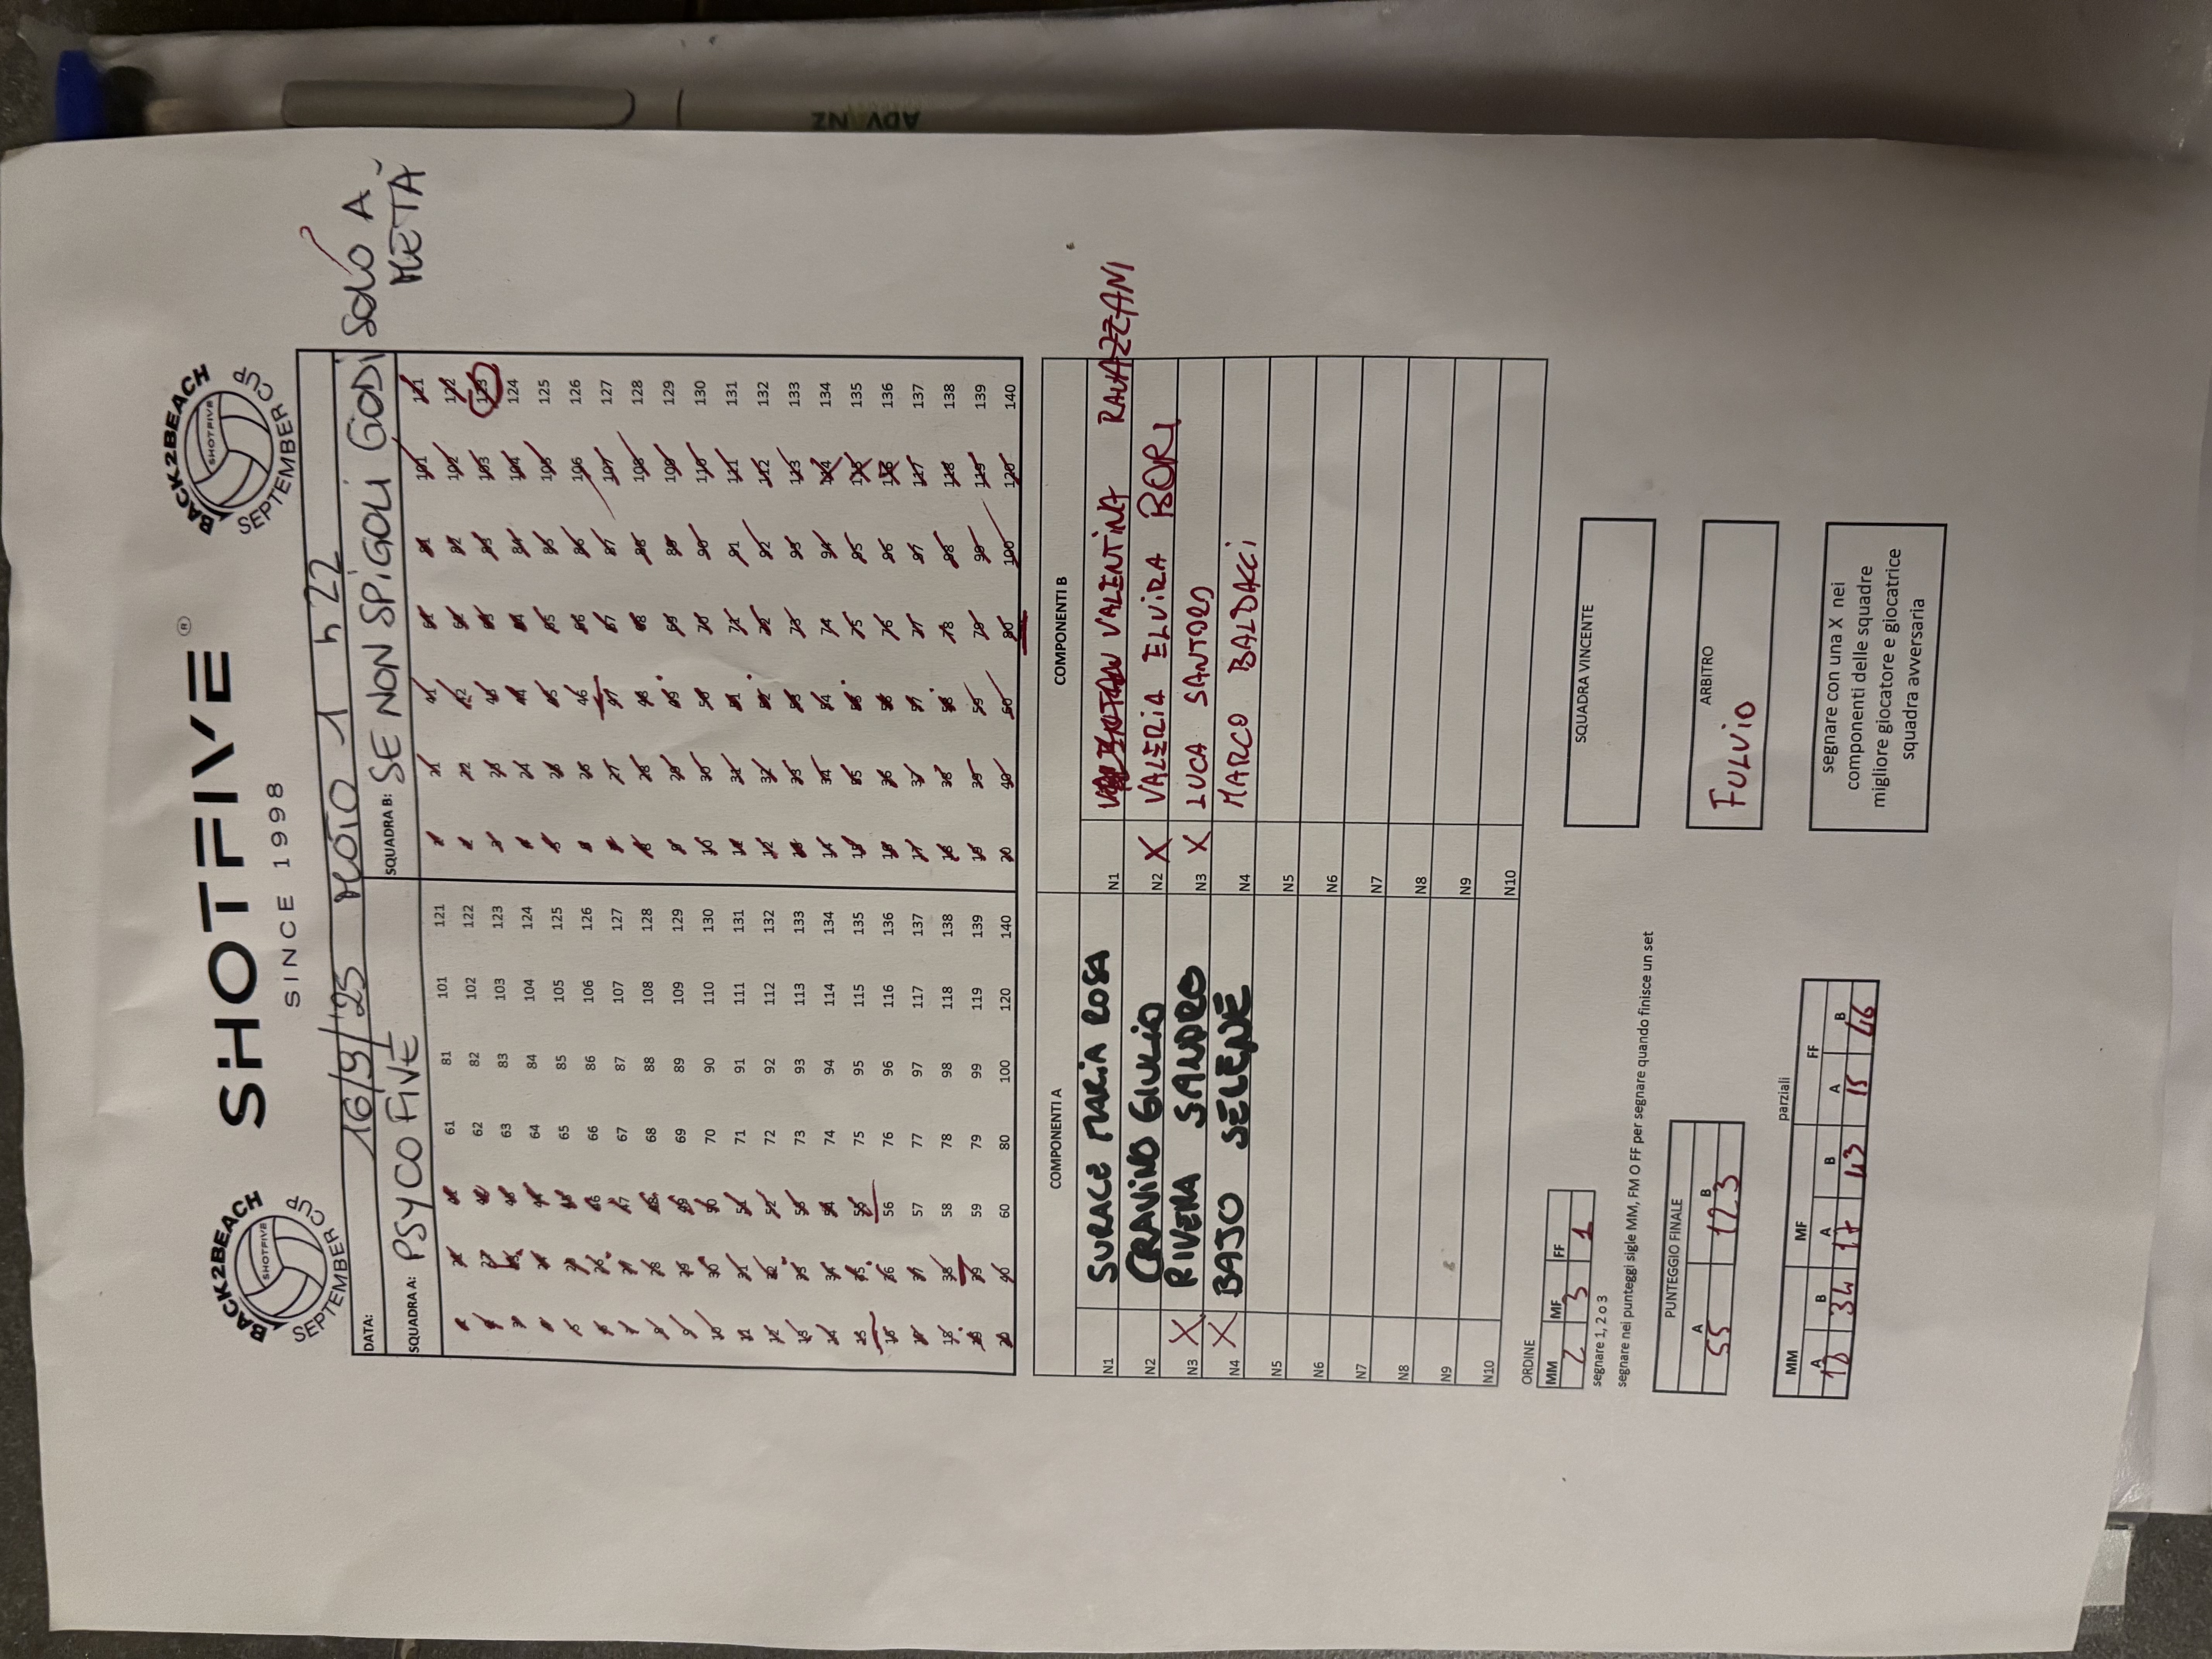 ADVANZ
BACK2BEACH
SHOTFIVE
SEPTEMBER CUP
SHOTFIVE ®
SINCE 1998
BACK2BEACH
SHOTFIVE
SEPTEMBER CUP
DATA: 16/9/'25 MOIO 1 h 22
SQUADRA A: PSYCO FIVE
SQUADRA B: SE NON SPIGOLI GODI SOLO A
METÀ
1 21 41 61 81 101 121 1 21 41 61 81 101 121
2 22 42 62 82 102 122 2 22 42 62 82 102 122
3 23 43 63 83 103 123 3 23 43 63 83 103 123
4 24 44 64 84 104 124 4 24 44 64 84 104 124
5 25 45 65 85 105 125 5 25 45 65 85 105 125
6 26 46 66 86 106 126 6 26 46 66 86 106 126
7 27 47 67 87 107 127 7 27 47 67 87 107 127
8 28 48 68 88 108 128 8 28 48 68 88 108 128
9 29 49 69 89 109 129 9 29 49 69 89 109 129
10 30 50 70 90 110 130 10 30 50 70 90 110 130
11 31 51 71 91 111 131 11 31 51 71 91 111 131
12 32 52 72 92 112 132 12 32 52 72 92 112 132
13 33 53 73 93 113 133 13 33 53 73 93 113 133
14 34 54 74 94 114 134 14 34 54 74 94 114 134
15 35 55 75 95 115 135 15 35 55 75 95 115 135
16 36 56 76 96 116 136 16 36 56 76 96 116 136
17 37 57 77 97 117 137 17 37 57 77 97 117 137
18 38 58 78 98 118 138 18 38 58 78 98 118 138
19 39 59 79 99 119 139 19 39 59 79 99 119 139
20 40 60 80 100 120 140 20 40 60 80 100 120 140
COMPONENTI A COMPONENTI B
N1 SURACE MARIA ROSA N1 VALENTINA RAVAZZANI
N2 GRAVINO GIULIO N2 X VALERIA ELVIRA BORI
N3 X RIVERA SANDRO N3 X LUCA SANTORO
N4 X BAJO SELENE N4 MARCO BALDACCI
N5 N5
N6 N6
N7 N7
N8 N8
N9 N9
N10 N10
ORDINE
MM MF FF
2 3 1
segnare 1, 2 o 3
segnare nei punteggi sigle MM, FM O FF per segnare quando finisce un set
PUNTEGGIO FINALE
A B
55 123
parziali
MM MF FF
A B A B A B
34 17 43 15 46
SQUADRA VINCENTE
ARBITRO
FULVIO
segnare con una X nei
componenti delle squadre
migliore giocatore e giocatrice
squadra avversaria